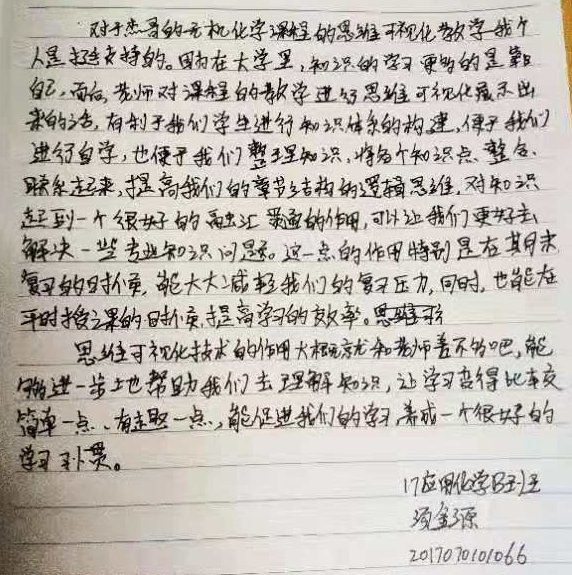 对于杰哥的无机化学课程的思维可视化教学我个
人是超级支持的。因为在大学里,知识的学习更多的是靠
自己,而后,老师对课程的教学进行思维可视化展示出
来的话,有利于我们学生进行知识体系的构建,便于我们
进行自学,也便于我们整理知识,将各个知识点整合、
联系起来,提高我们的章节结构的逻辑思维,对知识
起到一个很好的融汇贯通的作用,可以让我们更好去
解决一些专业知识问题。这一点的作用特别是在其期末
复习的时候,能大大减轻我们的复习压力,同时,也能在
平时授课的时候,提高学习的效率。
思维可视化技术的作用大概就和老师差不多吧,能
够进一步上也帮助我们去理解知识,让学习变得比较
简单一点、有趣一点,能促进我们的学习,养成一个很好的
学习习惯。
17应用化学B2班
2017070101066